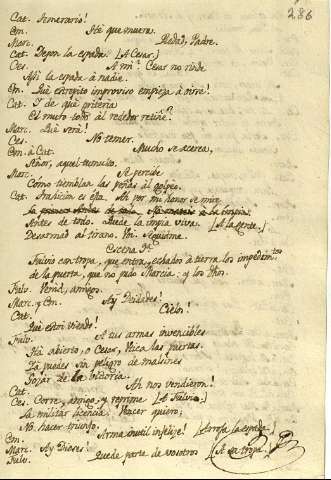 286
Cat. Temerario!
Em. Ha que muera.
Marc. Piedad, Padre.
Cat. Depon la espada. [A Cesar.]
Ces. A mi? Cesar no rinde
Assi la espada à nadie.
Em. Què estrepito improviso empieza à oirse!
Cat. Y de què griteria
El muro todo al rededor retiñe?
Marc. Què serà!
Ces. No temer.
Em. à Cat. Mucho se acerca,
Señor, aquel tumulto.
Marc. Se percibe
Como tiemblan las peñas al golpe.
Cat. Traicion es esta. Ah por mi honor se mire
Antes de todo. la impia viva. [A la gente.]
Desarmad al tirano. Voi. Seguidme.
Escena 9ª
Fulvio con tropa, que entra, echados à tierra los impedimtos
de la puerta, que no pudo Marcia; y los dhos.
Fulv. Venid, amigos.
Marc. y Em. Ay Deidades!
Cat. Cielos!
Què estoi viendo!
Fulv. A tus armas invencibles
Ha abierto, o Cesar, Utica las puertas.
Ya puedes sin peligro de malsines
Gozar de la victoria.
Cat. Ah nos vendieron!
Ces. Corre, amigo, y reprime [A Fulvio.]
La militar licencia. Vencer quiero,
No hacer triunfo.
Em. Arma inutil infelize! [Arroja la espada.]
Marc. Ay Dioses!
Fulv. Quede parte de vosotros [A su tropa.]